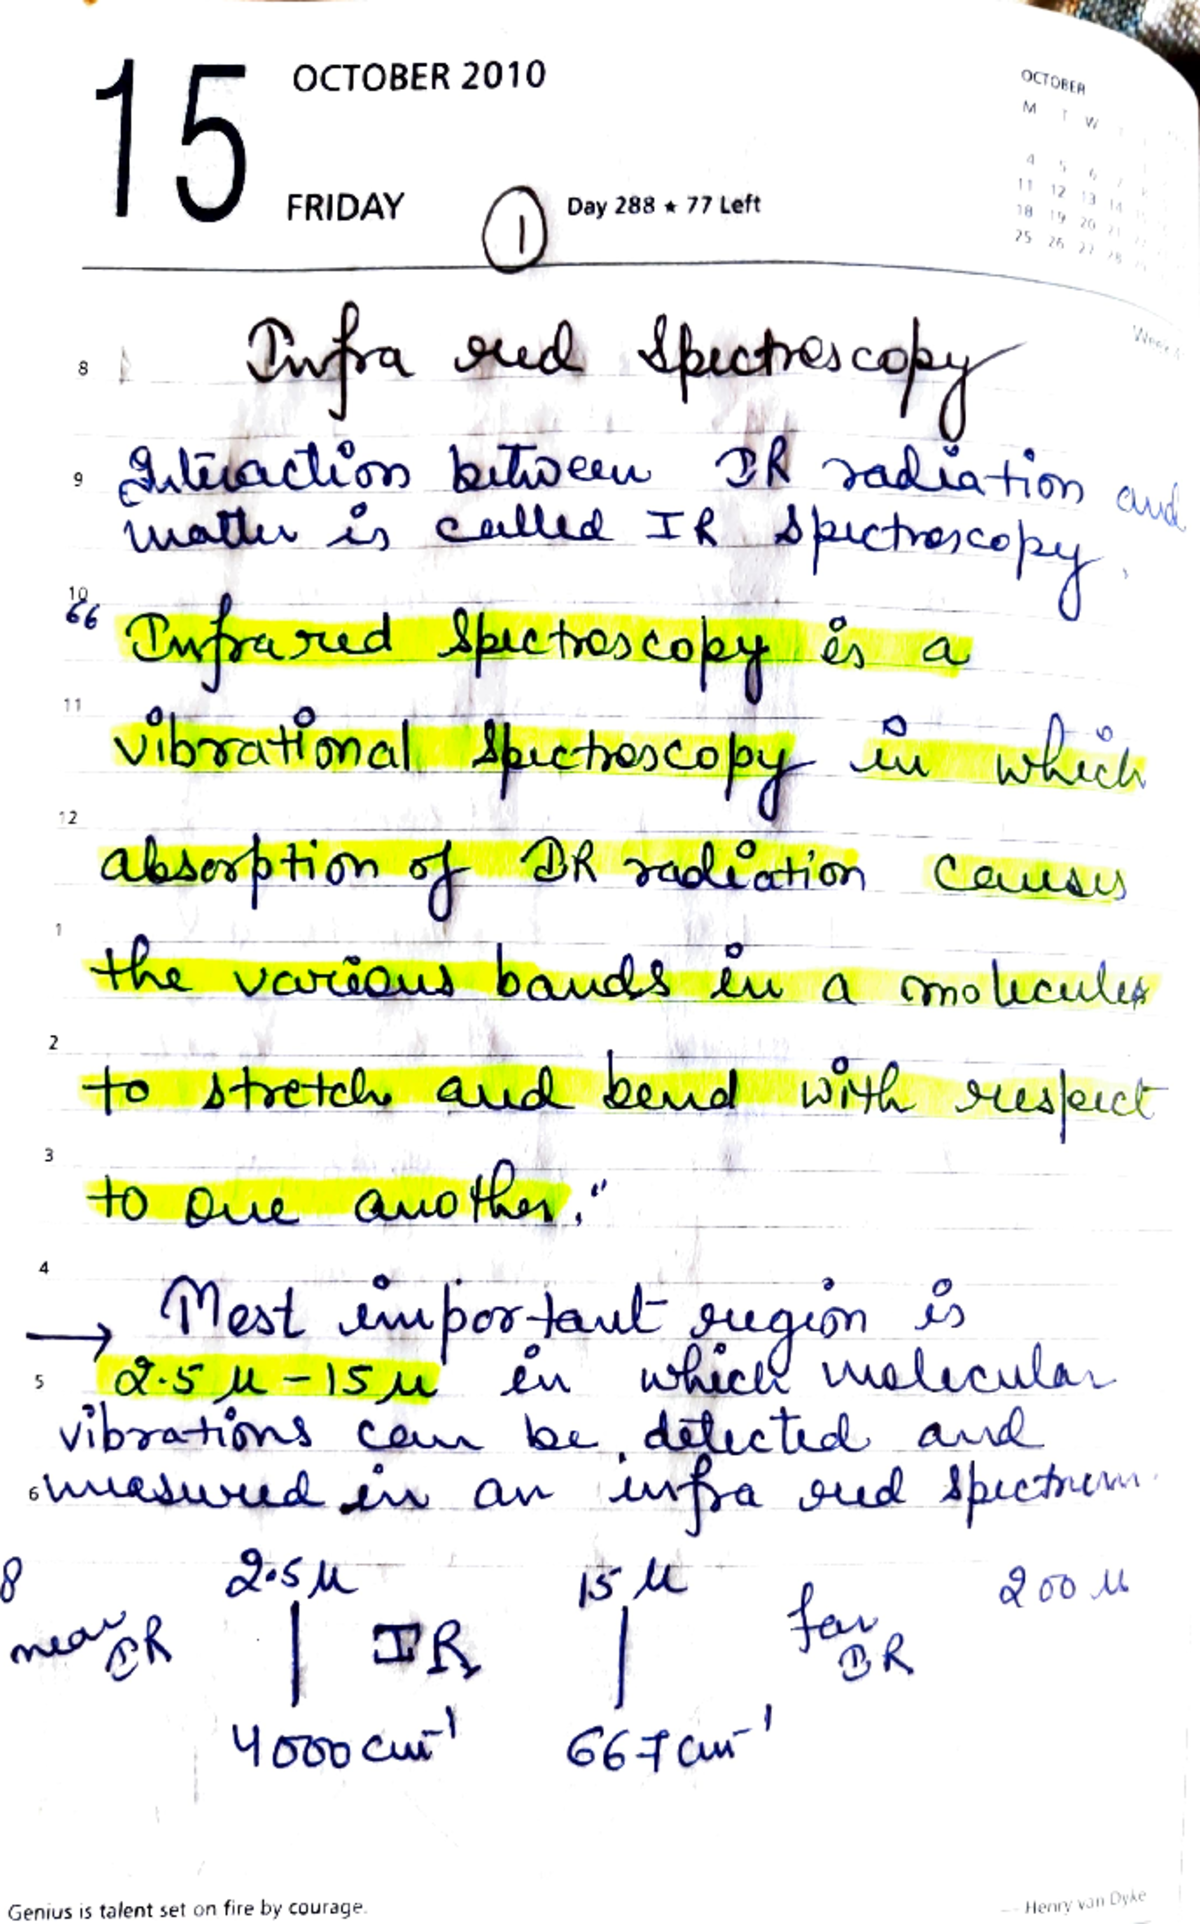 15
OCTOBER 2010
FRIDAY
1
Day 288 ★ 77 Left
OCTOBER
M T W
4 5 6 7
11 12 13 14
18 19 20 21
25 26 27 28
Week
8 Infra red Spectroscopy
9 Interaction between IR radiation and
matter is called IR Spectroscopy.
10
"Infrared Spectroscopy is a
11
vibrational Spectroscopy in which
12
absorption of IR radiation causes
1
the various bands in a molecules
2
to stretch and bend with respect
3
to one another."
4
→ Most important region is
5 2.5 μ - 15 μ in which molecular
vibrations can be detected and
6 measured in an infra red spectrum.
2.5 μ 15 μ 200 μ
near IR | IR | far IR
4000 cm⁻¹ 667 cm⁻¹
Genius is talent set on fire by courage.
-- Henry van Dyke